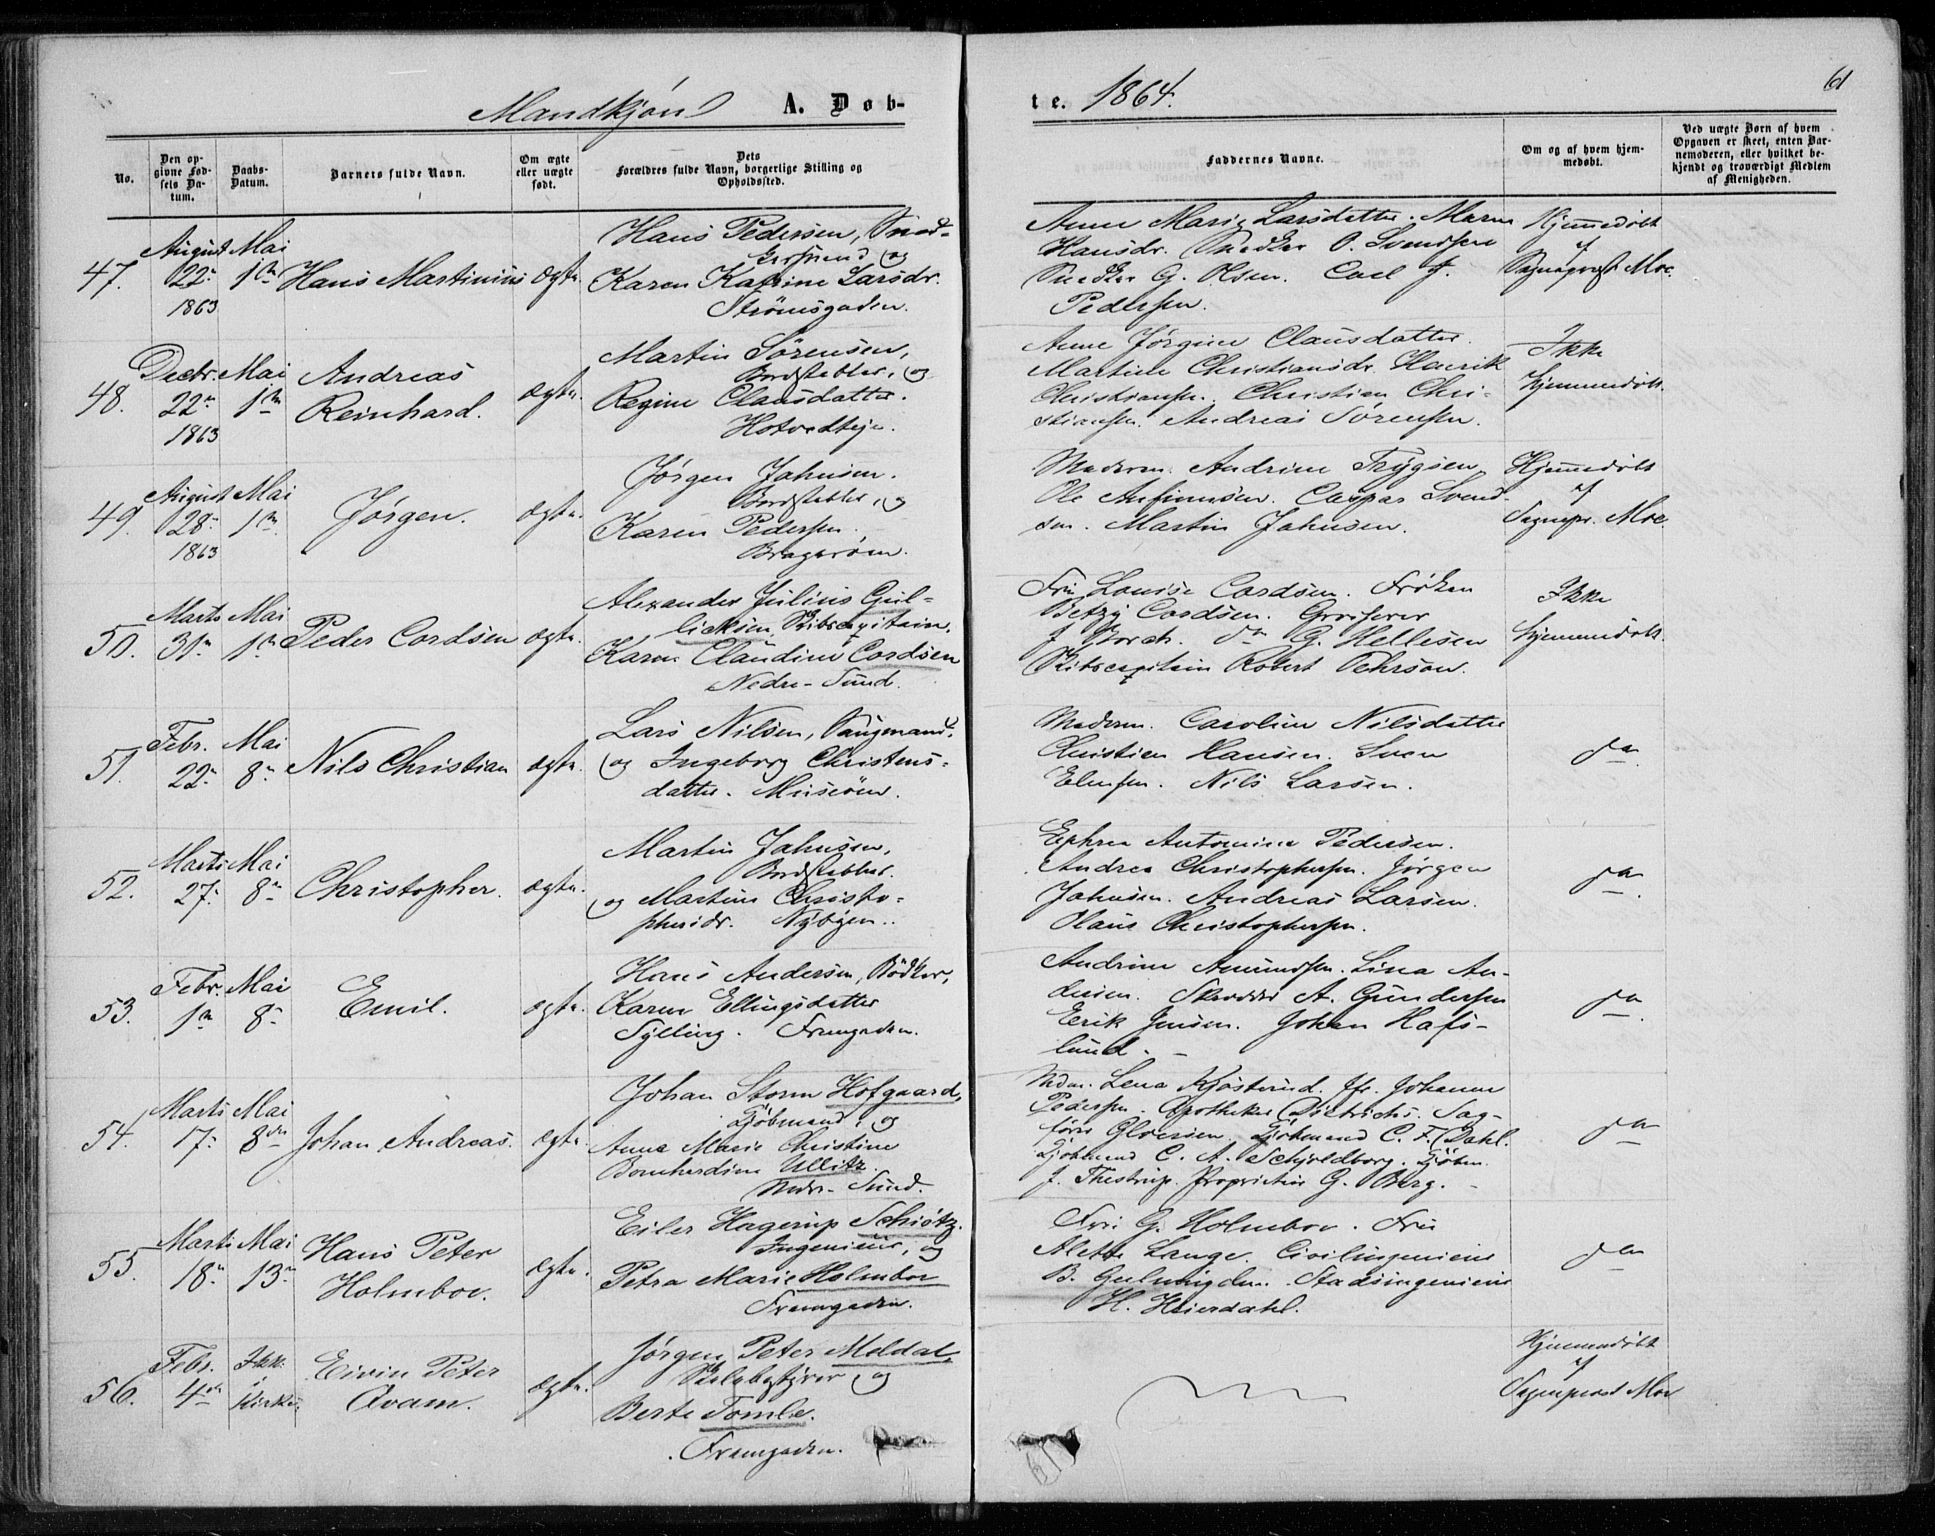 Mandkjön A. Døb-
te. 1864.
61
No.
Den op-
givne Fød-
sels Da-
tum.
Daabs-
Datum.
Barnets fulde Navn.
Om ægte
eller uægte
født.
Dets
Forældres fulde Navn, borgerlige Stilling og
Opholdssted.
Faddernes Navne.
Om og af hvem hjem-
medøbt.
Ved uægte Børn af hvem
Opgaven er skeet, enten Bar-
nemoderen, eller hvilket be-
kjendt og troværdigt Medlem
af Menigheden.
47.
August
22
1863
Mai
1
Hans Martinius
ægte
Hans Pedersen, Sned-
kersvend og
Karen Katrine Larsdr.
Strömsgaden.
Anne Marie Larsdatter. Maren
Hansdr. Snedker O. Svendsen
Snedker G. Olsen. Carl J.
Pedersen.
Hjemmedøbt
af
Sognepræst Moe.
48.
Decbr.
22
1863
Mai
1
Andreas
Reinhard.
ægte.
Martin Sörensen,
Bordstabler, og
Regine Clausdatter.
Hotvedtejе.
Anne Jørgine Clausdatter.
Christiansdr. Henrik
Christiansen. Christian Chri-
stiansen. Andreas Sörensen.
Ikke
hjemmedøbt.
49.
August
28
1863
Mai
1
Jörgen.
ægte.
Jørgen Jahnsen.
Bordstabler, og
Karen Pedersen.
Bragerøen.
Moderen. Andrine Trygsen
Ole Anfinnsen. Caspar Svend-
sen. Martin Jahnsen.
Hjemmedøbt
af
Sognepr. Moe
50.
Marts
31
Mai
1
Peder Cordsen
ægte.
Alexander Julius Gul-
licksen, Skibscapitain.
Karen Claudine Cordsen
Nedre-Sund.
Fru Louise Cordsen. Frøken
Betzy Cordsen. Grosserer
J. Borch. do G. Hellesen
Skibscapitain Robert Pehrson.
Ikke
hjemmedøbt.
51.
Febr.
22
Mai
8
Nils Christian
ægte.
Lars Nilsen, Saugmand,
og Ingeborg Christens-
datter.
Moderen. Caroline Nilsdatter
Christian Hansen. Sven
Nils Larsen.
do
52.
Marts
27
Mai
8
Christopher.
ægte.
Martin Jahnsen,
Bordstabler.
og Martine Christo-
phersdr. Nybyen.
Antomine Pedersen.
Andrea Christophersen. Jørgen
Jahnsen. Andreas Larsen.
Olaus Christophersen.
do
53.
Febr.
1
Mai
8
Emil.
ægte.
Hans Andersen, Bödker,
Karen Ellingsdatter
Sylling. Framgaden.
Andrine Amundsen. Lina An-
dersen. Skrædder A. Gundersen
Eerik Jensen. Johan Hafs-
lund.
do
54.
Marts
17
Mai
8
Johan Andreas.
ægte.
Johan Storm Hofgaard,
Kjöbmand, og
Anna Marie Christine
Bomhardine Ullitz.
Nedre-Sund.
Mdm. Lena Kjøsterud. Jfr. Johanne
Pedersen. Apotheker Dietrichs. Sag-
fører Gloersen. Kjøbmand C. F. Dahl.
Kjøbmand C. A. Schjoldborg. Kjøbm.
J. Thestrup. Proprietær G. Berg.
do
55.
Marts
18
Mai
13
Hans Peter
Holmboe.
ægte.
Eiler Hagerup Schiötz.
Ingenieur, og
Petra Marie Holmboe
Framgaden.
Fru G. Holmboe. Fru
Alette Lange. Civilingenieur
B. Stadsingenieur
H. Heierdahl.
do
56.
Febr.
4
Ikke
i
Kirke.
Eivin Peter
Avam.
ægte.
Jørgen Peter Meldal,
og
Berte Tomle.
Framgaden.
Hjemmedøbt
af
Sognepræst Moe